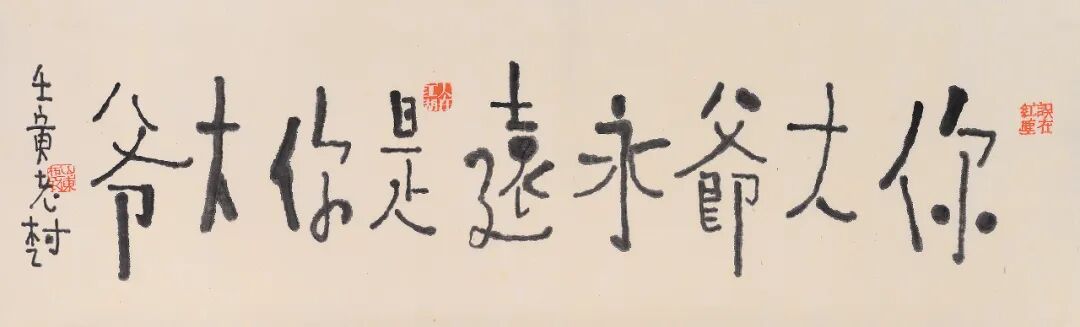 誤在紅塵
你大爺永遠是你大爷
人在江湖
壬寅老村